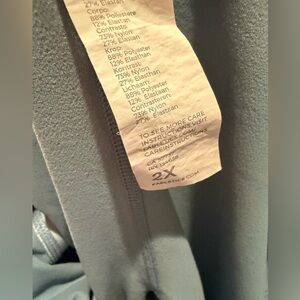 27% Elastan
Corpo:
88% Poliestere
12% Elastan
Contrasto:
73% Nylon
27% Elastan
Krop:
88% Polyester
12% Elasthan
Kontrast:
73% Nylon
27% Elasthan
Lichaam:
88% Polyester
12% Elastaan
Contrasterend:
73% Nylon
27% Elastaan
TO SEE MORE CARE
INSTRUCTIONS, VISIT
FABLETICS.COM/
CAREINSTRUCTIONS
2X
FABLETICS.COM